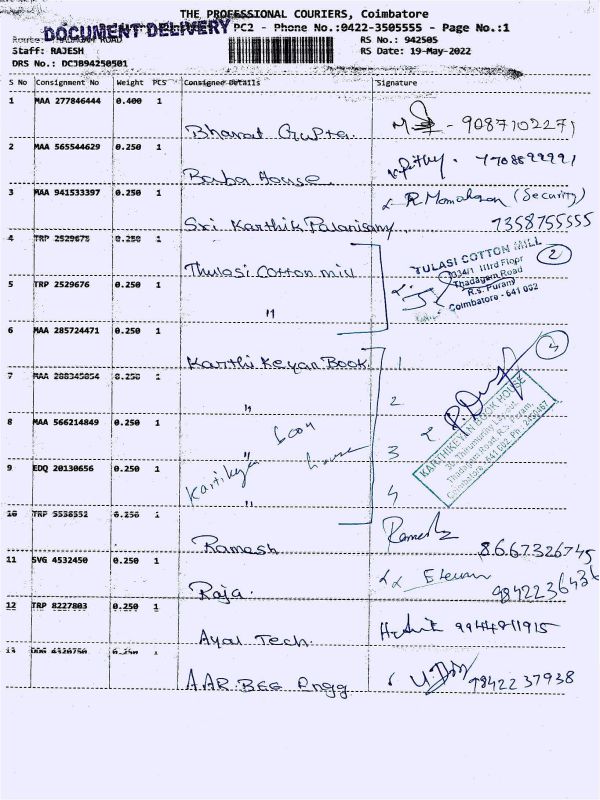 THE PROFESSIONAL COURIERS, Coimbatore
DOCUMENT DELIVERY PC2 - Phone No.:0422-3505555 - Page No.:1
Route: ROAD RS No.: 942505
Staff: RAJESH RS Date: 19-May-2022
DRS No.: DC3B94250501
S No Consignment No Weight PCS Consignee Details Signature
1 MAA 277846444 0.400 1
Bharat Gupta. M. - 9087102271
2 MAA 565544629 0.250 1
Baba House
3 MAA 941533397 0.250 1 (Security)
Sri Karthik Palanisamy, 7358755555
4 TRP 2529675 0.250 1
Thulasi Cotton mill TULASI COTTON MILL 2
334/1 IIIrd Floor
Thadagam Road
R.s. Puram
Coimbatore - 641 002
5 TRP 2529676 0.250 1
"
6 MAA 285724471 0.250 1
Karthi Keyan Book 1
7 MAA 288345854 0.250 1
" 2
KARTHIKEYAN BOOK HOUSE
Thadagam Road, R.S. Puram,
8 MAA 566214849 0.250 1
" 3
9 EDQ 20130656 0.250 1
Kartikeyan book house
" 4
10 TRP 5538552 0.250 1
Ramesh Ramesh 8667326745
11 SVG 4532450 0.250 1
Raja. 9842236436
12 TRP 8227803 0.250 1
Ayal Tech. 9944811915
13 0.250 1
A.AR. BEE Engg 9842237938